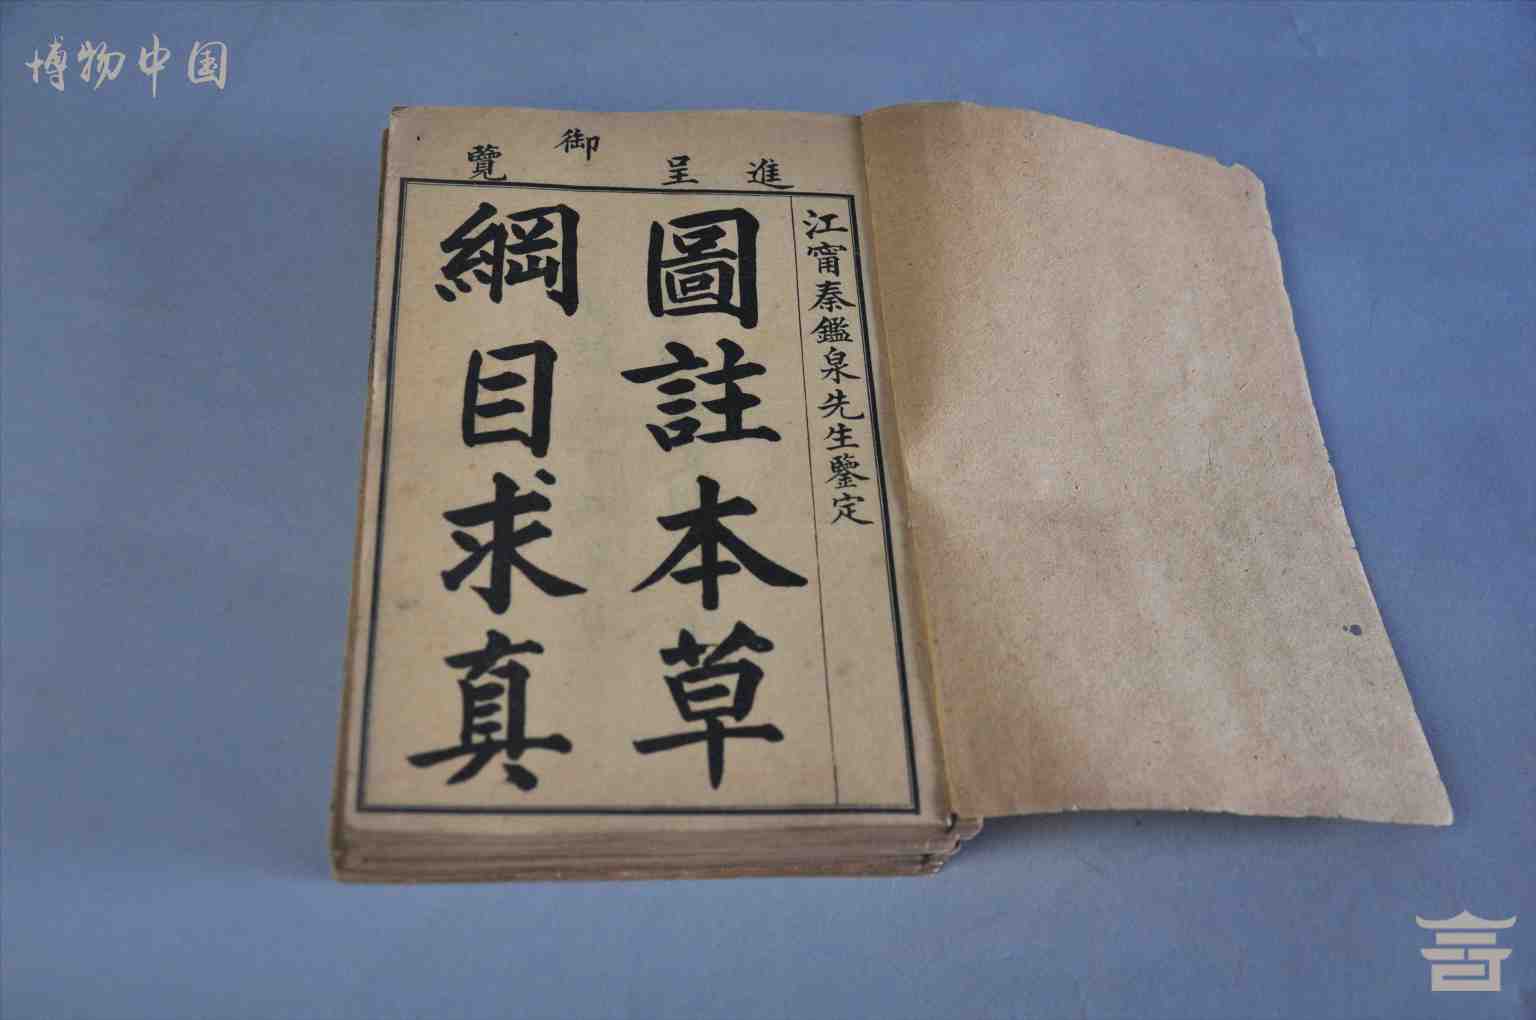 博物中国
進呈御覽
江甯秦鑑泉先生鑒定
圖註本草
綱目求真